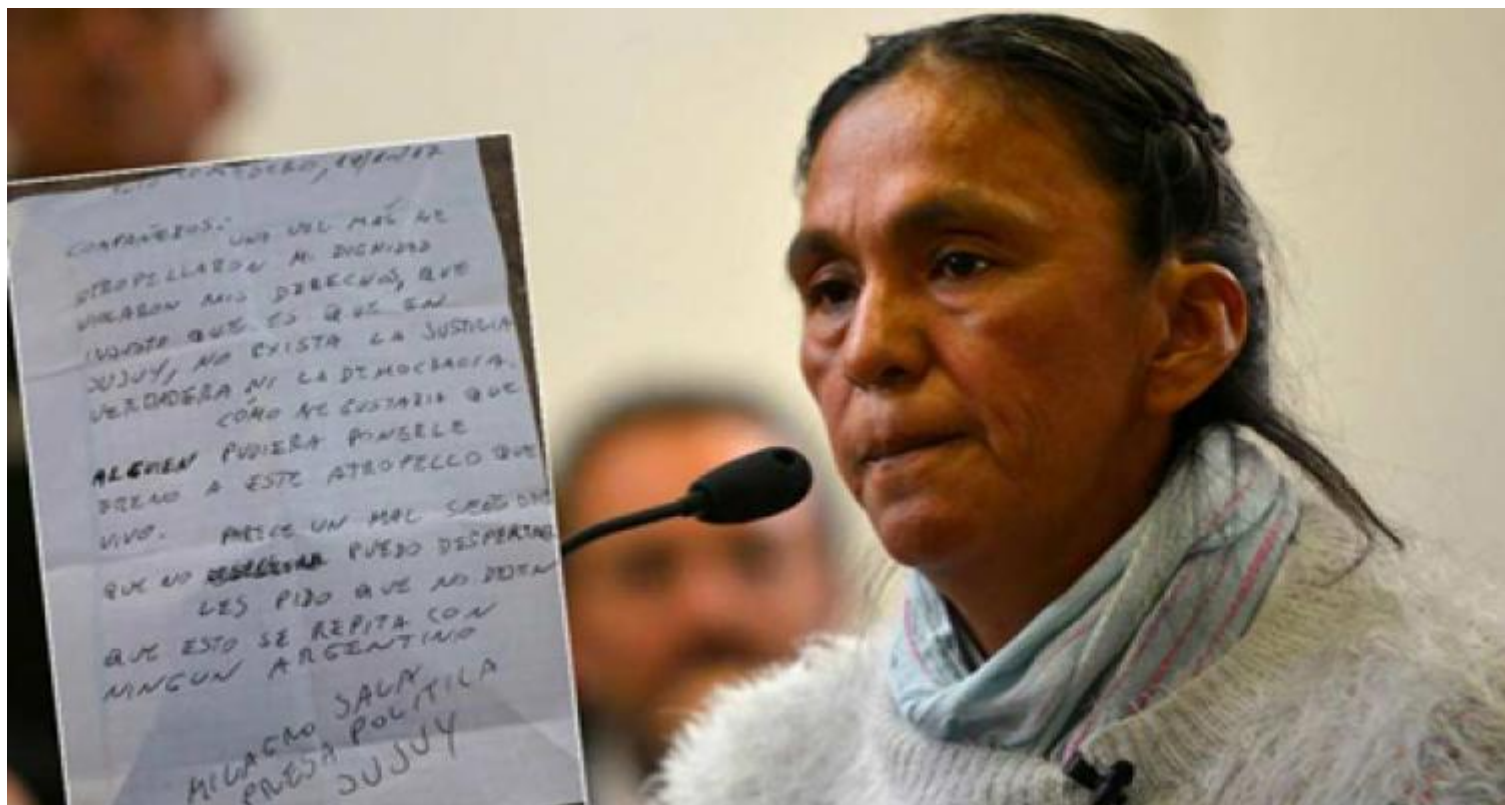 COMPAÑEROS:
UNA VEZ MAS ME
ATROPELLARON MI DIGNIDAD
VIOLARON MIS DERECHOS, QUE
INJUSTO QUE ES QUE EN
JUJUY, NO EXISTA LA JUSTICIA
VERDADERA NI LA DEMOCRACIA.
CÓMO ME GUSTARIA QUE
ALGUIEN PUDIERA PONERLE
FRENO A ESTE ATROPELLO QUE
VIVO. PARECE UN MAL SUEÑO DEL
QUE NO PUEDO DESPERTAR
LES PIDO QUE NO DEJEN
QUE ESTO SE REPITA CON
NINGUN ARGENTINO
MILAGRO SALA
PRESA POLITICA
JUJUY